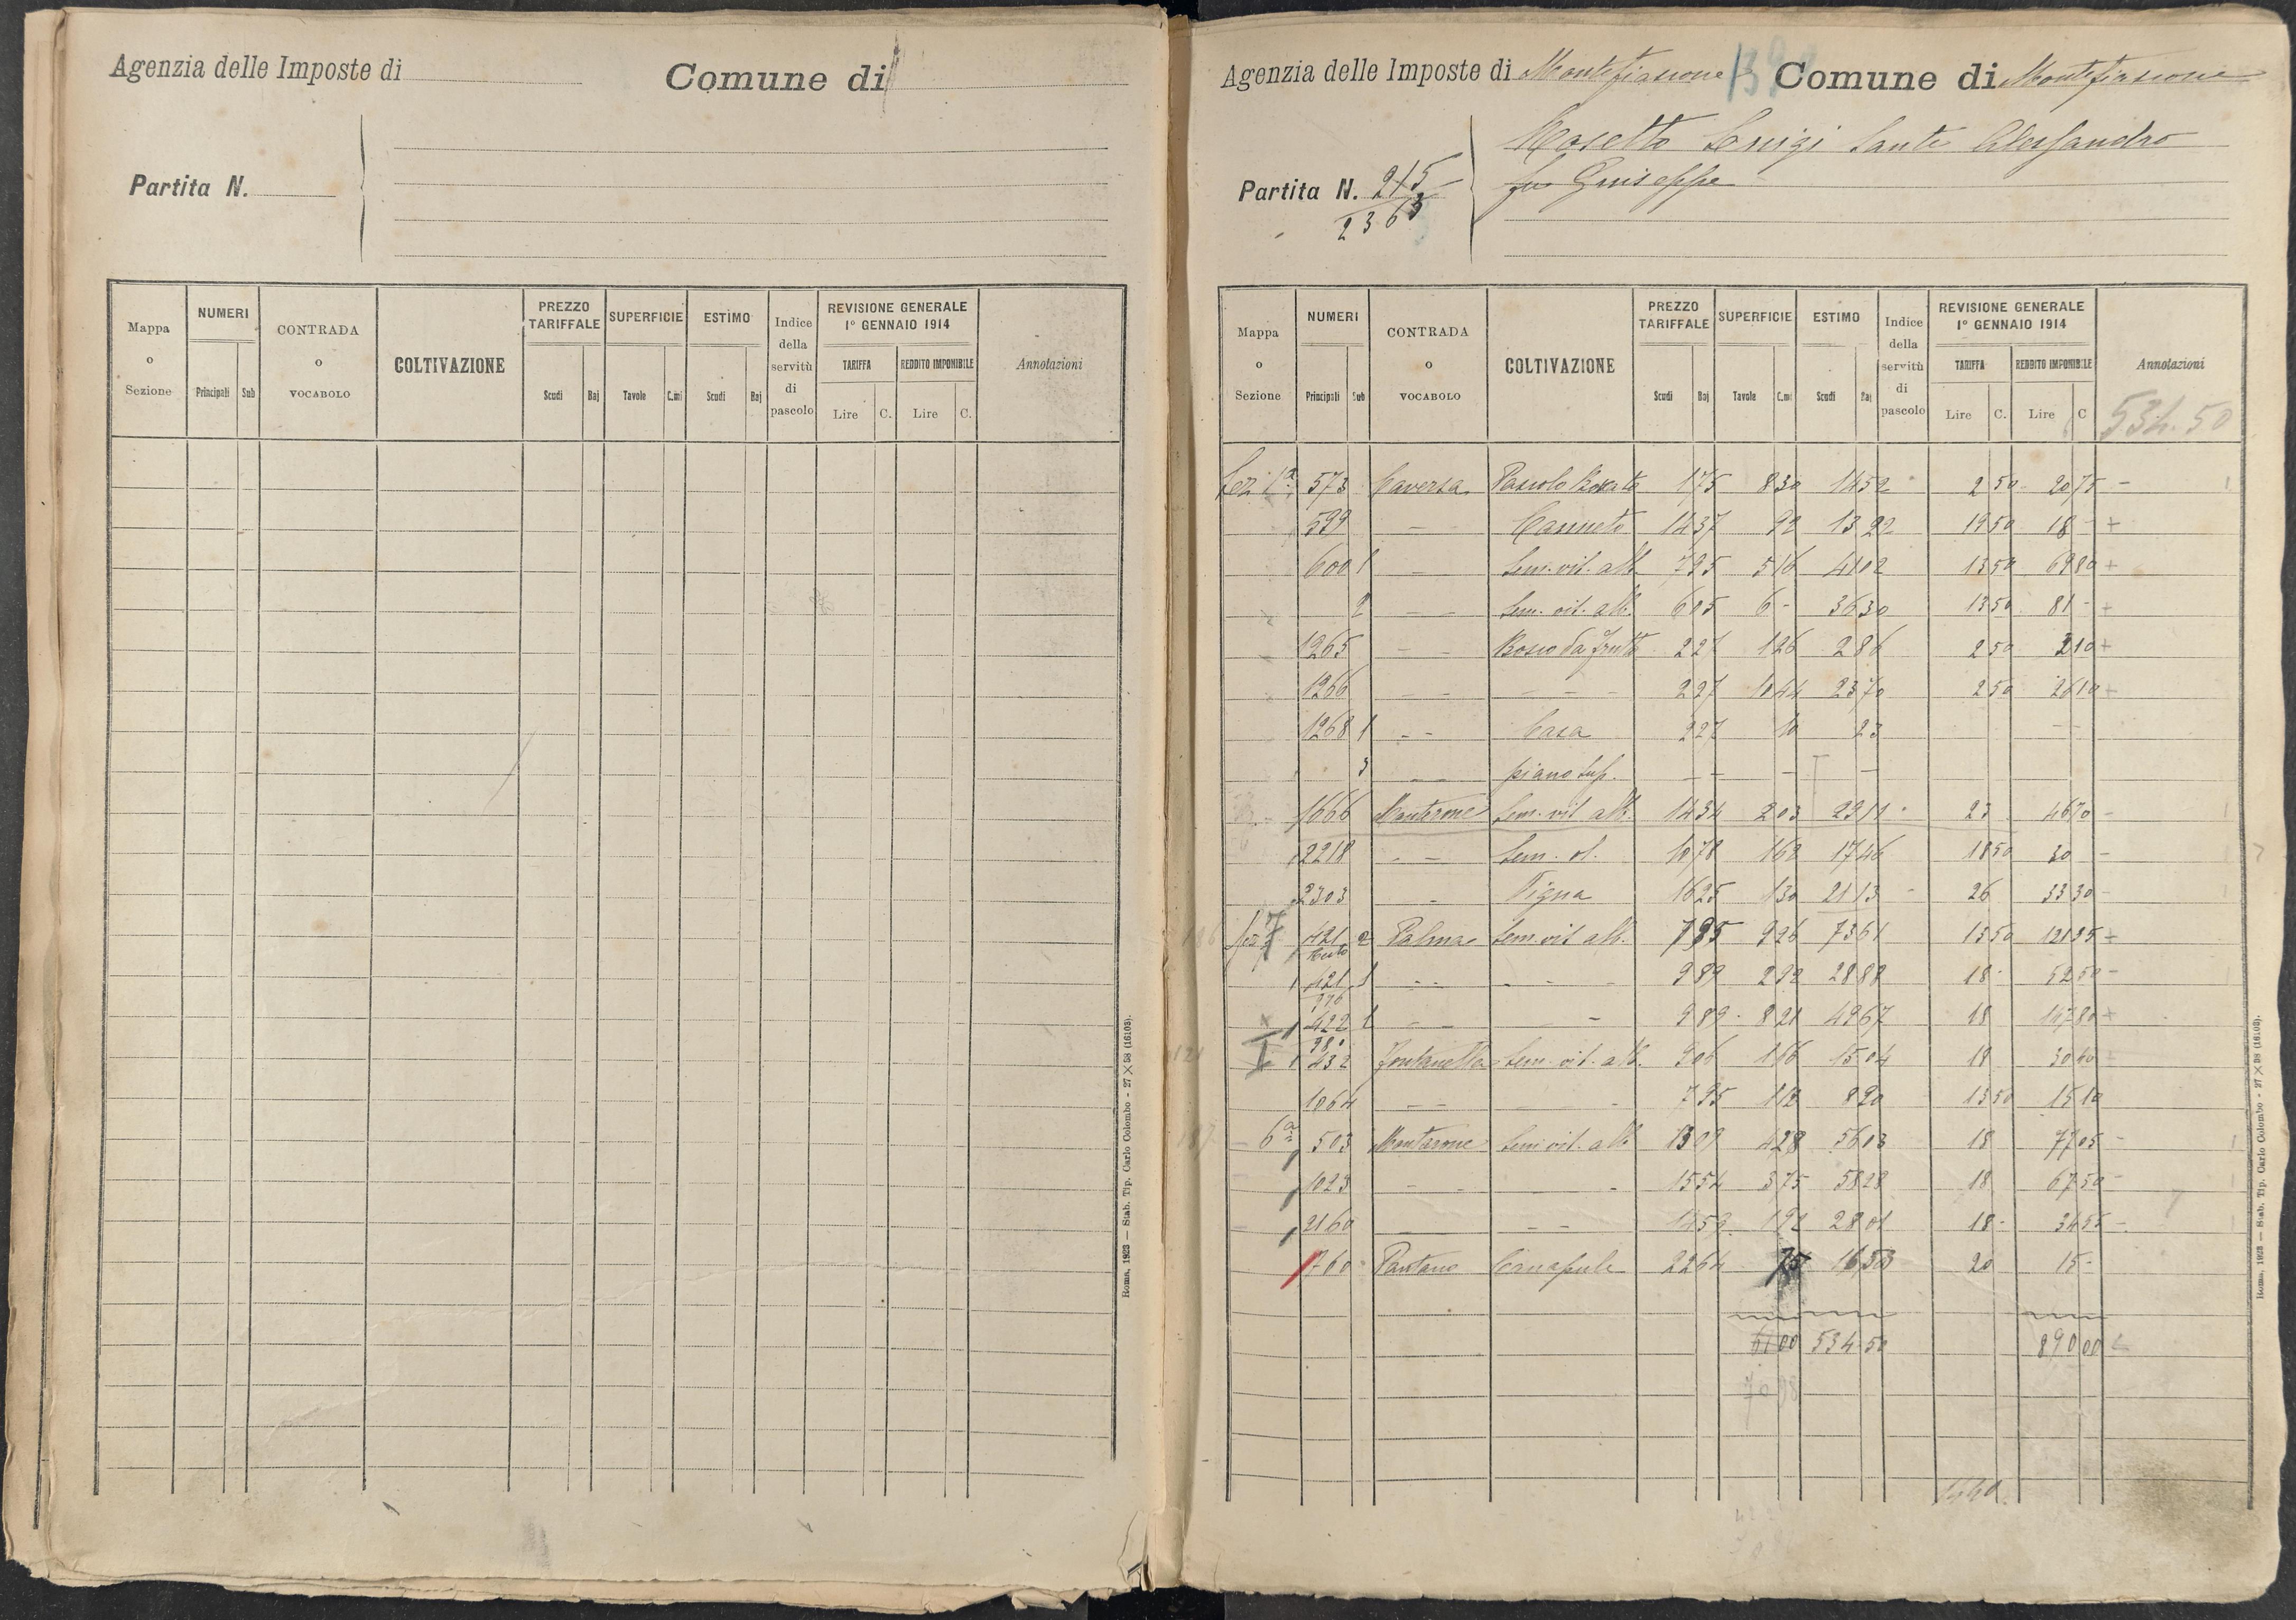 Agenzia delle Imposte di
Comune di
Partita N.
Mappa o Sezione
NUMERI
Principali Sub
CONTRADA o VOCABOLO
COLTIVAZIONE
PREZZO TARIFFALE
Scudi Baj
SUPERFICIE
Tavole C.mi
ESTIMO
Scudi Baj
Indice della servitù di pascolo
REVISIONE GENERALE 1° GENNAIO 1914
TARIFFA REDDITO IMPONIBILE
Lire C. Lire C.
Annotazioni
Roma, 1923 — Stab. Tip. Carlo Colombo - 27 × 38 (16103).
Agenzia delle Imposte di Montefiascone Comune di Montefiascone
Luigi Sante Alessandro
Partita N. 215 fu Giuseppe
2363
Mappa o Sezione
NUMERI
Principali Sub
CONTRADA o VOCABOLO
COLTIVAZIONE
PREZZO TARIFFALE
Scudi Baj
SUPERFICIE
Tavole C.mi
ESTIMO
Scudi Baj
Indice della servitù di pascolo
REVISIONE GENERALE 1° GENNAIO 1914
TARIFFA REDDITO IMPONIBILE
Lire C. Lire C
Annotazioni
534.50
Sez 1ª 573 Caversa Pascolo 175 830 1452 2 50 20 75 -
599 — Canneto 1437 92 1322 19 50 18 - +
600 1 — Sem. vit. alb. 795 516 4102 13 50 69 80 +
2 — — Sem. vit. alb. 605 6 - 3630 13 50 81 - +
1265 — — Bosco da frutto 227 126 286 2 50 +
1266 — — — — — 227 1044 2370 2 50 26 10 +
1268 1 - - Casa 227 10 23
3 — — piano sup. — — — —
1666 Sem. vit. alb. 1434 203 2911 23 46 70 -
2218 - — Sem. ol. 1078 162 1746 18 50 30 -
2303 - Vigna 1625 130 2113 - 26 33 30 -
421 2 Palma Sem. vit. alb. 795 926 7361 13 50 +
421 1 - - - - - 989 292 2888 18 - 52 50 -
422 1 - — - 989 4967 18 147 80 +
432 Fontanella Sem. vit. alb. 906 166 1504 18
1064 — — - 795 112 890 13 50 15 10
6ª 503 Montarone Sem. vit. alb. 1309 428 5603 18 77 05 -
1023 - - - - 1554 375 5828 18 67 50 -
2160 — — — 1459 192 2801 18 - 34 55 -
760 Pantano Canapule 2264 75 20 15 -
534.50 890 00